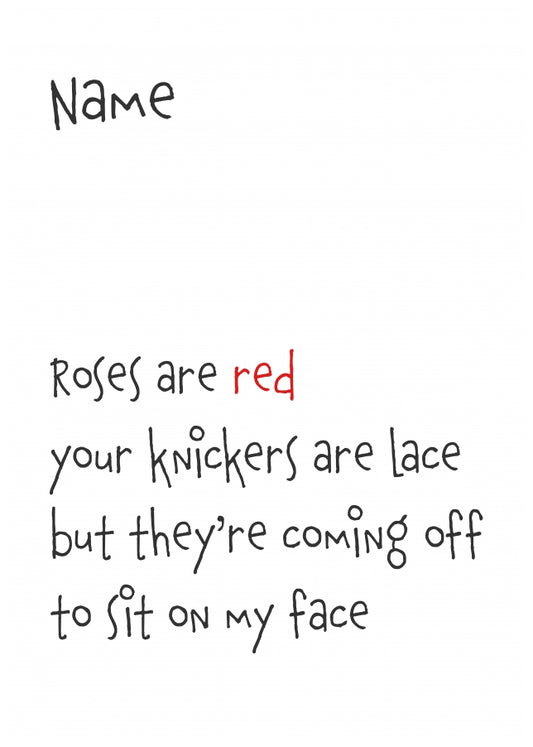 Name
Roses are red
your knickers are lace
but they're coming off
to sit on my face